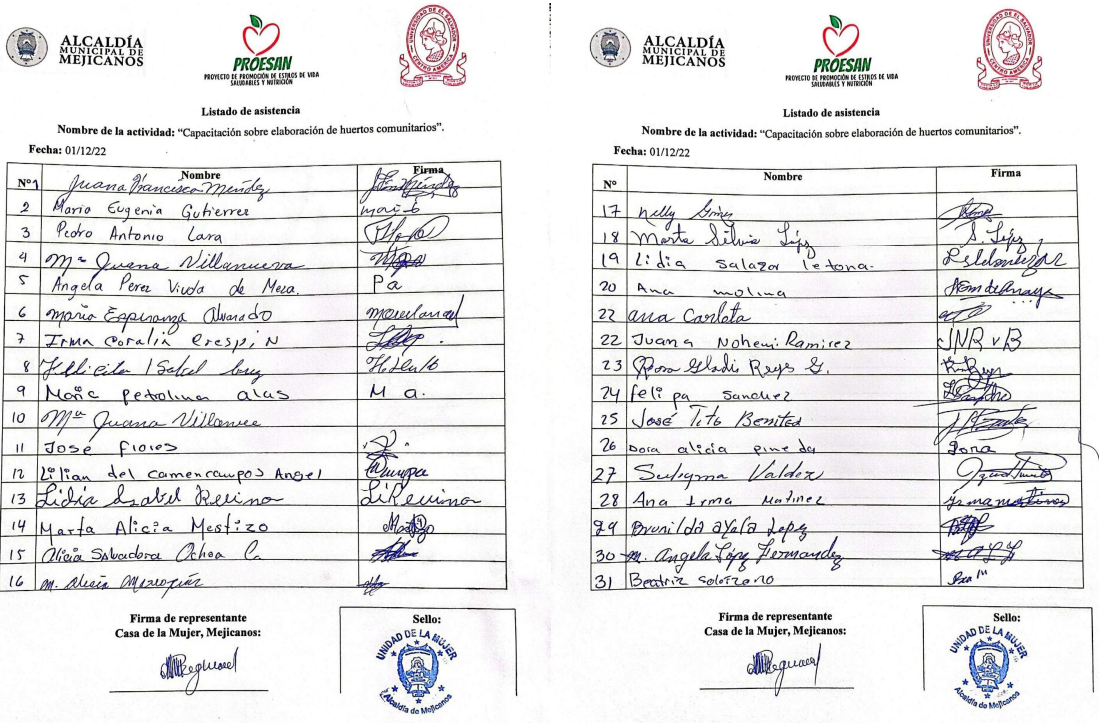 ALCALDÍA
MUNICIPAL DE
MEJICANOS
PROESAN
PROYECTO DE PROMOCIÓN DE ESTILOS DE VIDA
SALUDABLES Y NUTRICIÓN
UNIVERSIDAD DE EL SALVADOR
CENTRO AMERICA
Listado de asistencia
Nombre de la actividad: “Capacitación sobre elaboración de huertos comunitarios”.
Fecha: 01/12/22
Nº Nombre Firma
1 Juana Francisca Mendez
2 Maria Eugenia Gutierrez
3 Pedro Antonio Lara
4 Mª Juana Villanueva
5 Angela Perez Viuda de Meza. Pa
6 Maria Esperanza Alvarado
7 Irma Coralia Crespin
8 Isabel
9 petolina alas M a.
10 Mª Juana
11 Jose flores
12 Lilian del Angel
13 Lidia Isabel Reuino LiReuino
14 Marta Alicia Mestizo
15 Alicia Salvadora Ochoa
16 M. Alicia
Firma de representante
Casa de la Mujer, Mejicanos:
Sello:
UNIDAD DE LA MUJER
Alcaldía de Mejicanos
ALCALDÍA
MUNICIPAL DE
MEJICANOS
PROESAN
PROYECTO DE PROMOCIÓN DE ESTILOS DE VIDA
SALUDABLES Y NUTRICIÓN
UNIVERSIDAD DE EL SALVADOR
CENTRO AMERICA
Listado de asistencia
Nombre de la actividad: “Capacitación sobre elaboración de huertos comunitarios”.
Fecha: 01/12/22
Nº Nombre Firma
17 Nelly
18 Marta Silvia López S. López
19 Lidia Salazar letona.
20 Ana molina
22 ana Carlota
22 Juana Nohemi Ramirez JNR v B
23 Rosa Gladis Reys G.
24 felipa Sanchez
25 José Tito Benites
26 Dora alicia pineda Dora
27 Suleyma Valdez
28 Ana Irma Martinez Irma martinez
29 Brunilda ayala Lopez
30 M. Angela López Hernandez
31 Beatriz Solorzano
Firma de representante
Casa de la Mujer, Mejicanos:
Sello:
UNIDAD DE LA MUJER
Alcaldía de Mejicanos